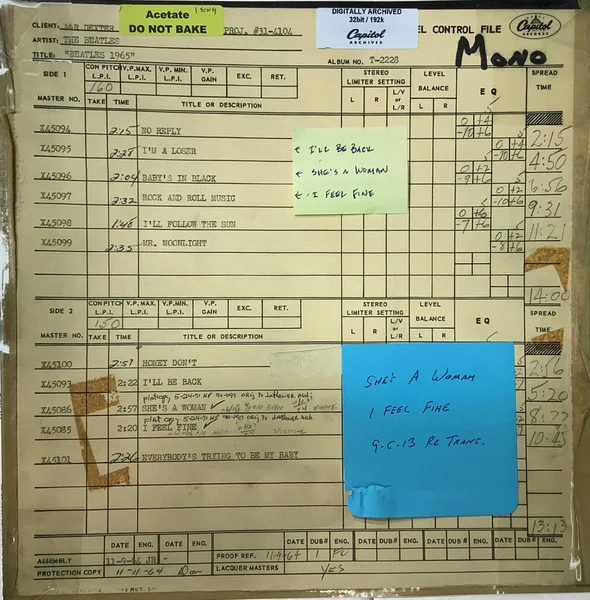 CLIENT: A&R DEXTER PROJ. #31-4104
Acetate
DO NOT BAKE
DIGITALLY ARCHIVED
32bit / 192k
Capitol
ARCHIVES
EL CONTROL FILE
Capitol
RECORDS
ARTIST: THE BEATLES
TITLE: "BEATLES 1965"
ALBUM NO. T-2228
MONO
SIDE 1 CON PITCH L.P.I. V.P. MAX. L.P.I. V.P. MIN. L.P.I. V.P. GAIN EXC. RET. STEREO LIMITER SETTING LEVEL BALANCE EQ SPREAD TIME
160
L R L/V or L/R L R
MASTER NO. TAKE TIME TITLE OR DESCRIPTION
X45094 2:15 NO REPLY 0 +4 -10 +6 2:15
X45095 2:28 I'M A LOSER 0 +4 -10 +6 4:50
X45096 2:04 BABY'S IN BLACK 0 +2 -9 +6
2:32 ROCK AND ROLL MUSIC 0 +2 -10 +6 9:31
X45098 1:48 I'LL FOLLOW THE SUN 0 +6 -7 +6 11:21
X45099 2:35 MR. MOONLIGHT 0 +2 -8 +6
14:00
← I'LL BE BACK
← SHE'S A WOMAN
← I FEEL FINE
SIDE 2 CON PITCH L.P.I. V.P. MAX. L.P.I. V.P. MIN. L.P.I. V.P. GAIN EXC. RET. STEREO LIMITER SETTING LEVEL BALANCE EQ SPREAD TIME
150
L R L/V or L/R L
MASTER NO. TAKE TIME TITLE OR DESCRIPTION
X45100 2:57 HONEY DON'T 2:56
X45093 2:22 I'LL BE BACK 5:20
X45086 2:57 SHE'S A WOMAN
X45085 2:20 I FEEL FINE
X45101 2:26 EVERYBODY'S TRYING TO BE MY BABY
13:13
SHE'S A WOMAN
I FEEL FINE
9-6-13 RE TRANS.
DATE ENG. DATE ENG. DATE DUB# ENG. DATE DUB# ENG. DATE DUB# ENG. DATE DUB# ENG.
ASSEMBLY 11-9-64 JR PROOF REF. 11-9-64 1
PROTECTION COPY 11-11-64 LACQUER MASTERS YES